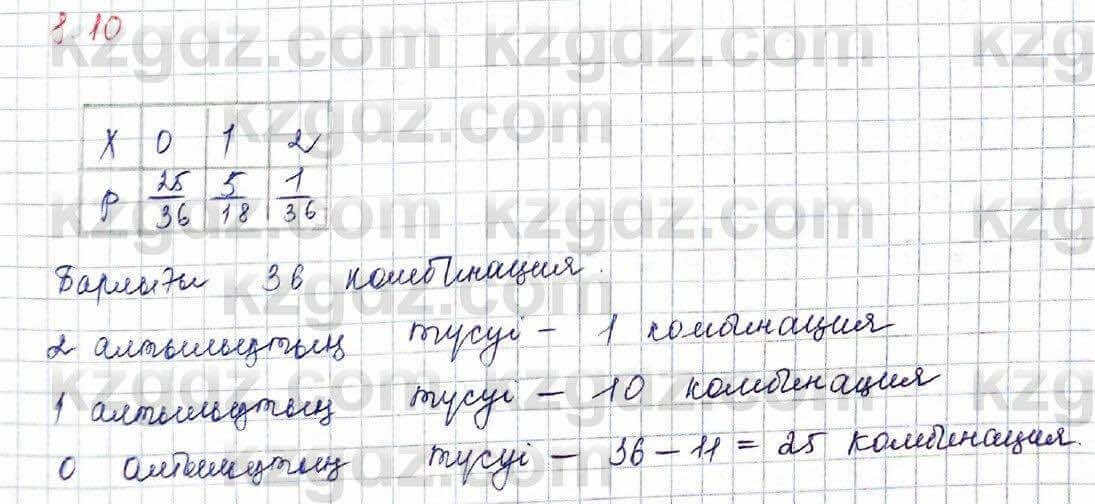 8.10
kzgdz.com kzgdz.com
X 0 1 2
P 25/36 5/18 1/36
Барлығы 36 комбинация.
2 алтылықтың түсуі - 1 комбинация
1 алтылықтың түсуі - 10 комбинация
0 алтылықтың түсуі - 36 - 11 = 25 комбинация.